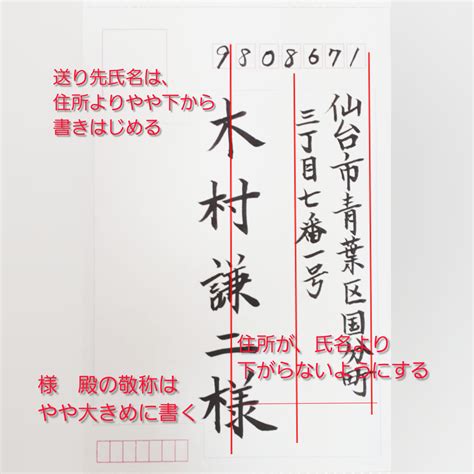 9808671
仙台市青葉区国分町
三丁目七番一号
木村謙二様
送り先氏名は、
住所よりやや下から
書きはじめる
住所が、氏名より
下がらないようにする
様　殿の敬称は
やや大きめに書く